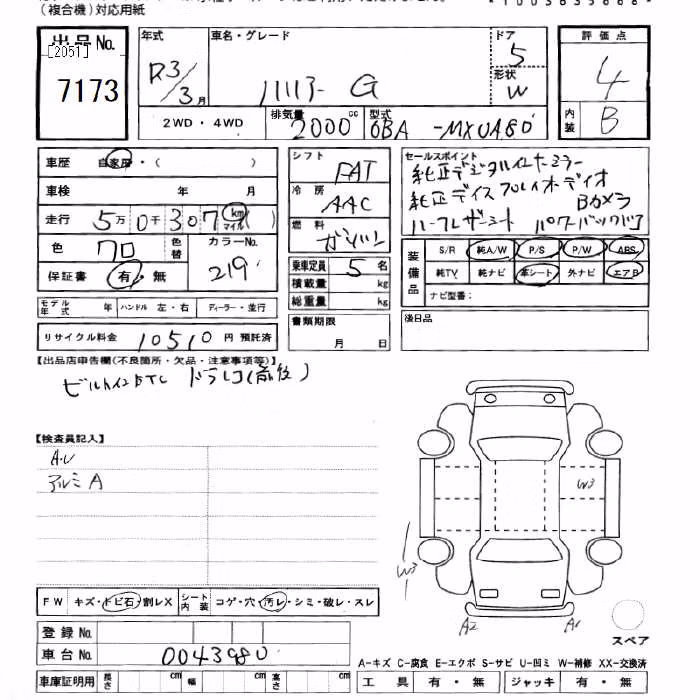 (複合機)対応用紙
出品No.
[2051]
7173
年式
R3/3月
車名・グレード
ハリアー G
ドア
5
形状
W
評価点
4
内装
B
2WD・4WD
排気量
2000cc
型式
6BA-MXUA80
車歴 自家用・( )
車検 年 月
走行 5万0千307 km マイル ( )
色 クロ
色替
カラーNo.
219
保証書 有・無
モデル年式 年 ハンドル 左・右 ディーラー・並行
リサイクル料金 10510円 預託済
シフト
FAT
冷房
AAC
燃料
ガソリン
乗車定員 5名
積載量 kg
総重量 kg
書類期限
月 日
セールスポイント
純正デジタルインナーミラー
純正ディスプレイオーディオ
Bカメラ
ハーフレザーシート パワーバックドア
装備品
S/R 純A/W P/S P/W ABS
純TV 純ナビ 革シート 外ナビ エアB
ナビ型番:
後日品
【出品店申告欄(不良箇所・欠品・注意事項等)】
ビルトインETC ドラレコ(前後)
【検査員記入】
A.U
アルミ A
W3
W3
A2
A1
スペア
FW キズ・トビ石・割レX シート内装 コゲ・穴・汚レ・シミ・破レ・スレ
登録No.
車台No. 0043980
車庫証明用 長さ cm 幅 cm 高さ cm
A-キズ C-腐食 E-エクボ S-サビ U-凹ミ W-補修 XX-交換済
工具 有・無 ジャッキ 有・無